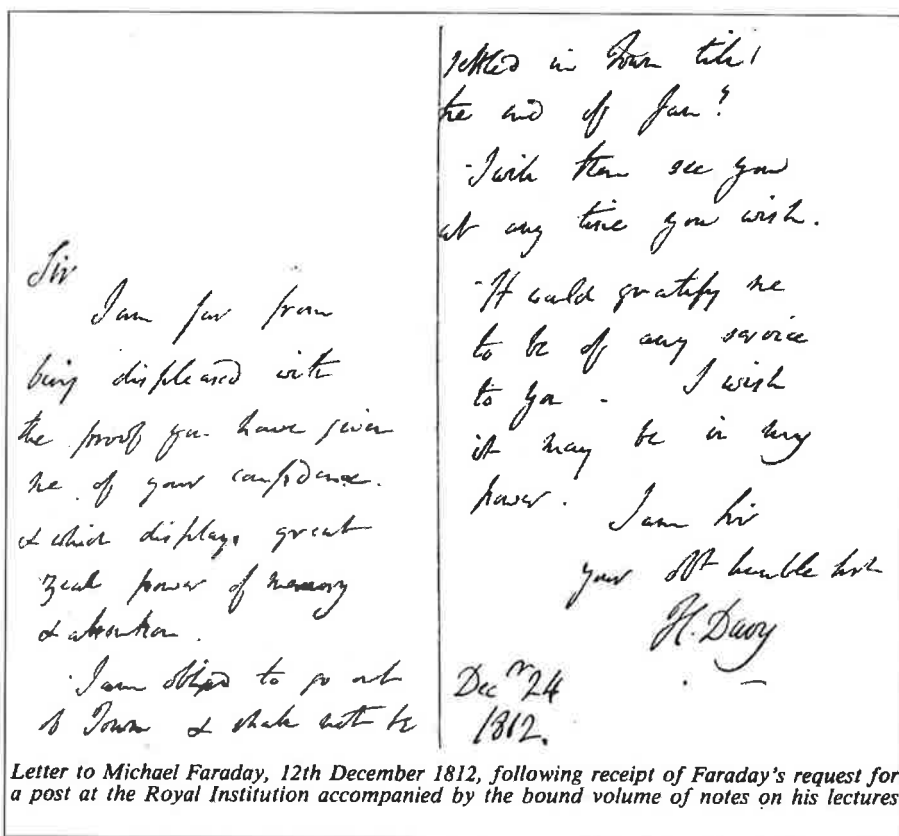 Sir
I am far from
being displeased with
the proof you have given
me of your confidence.
& which displays great
zeal power of memory
& attention.
I am obliged to go out
of Town & shall not be
settled in Town till
the end of Jany
I will then see you
at any time you wish.
It would gratify me
to be of any service
to you. I wish
it may be in my
power.
I am Sir
your obt humble Sert
H. Davy
Decr 24
1812.
Letter to Michael Faraday, 12th December 1812, following receipt of Faraday's request for
a post at the Royal Institution accompanied by the bound volume of notes on his lectures